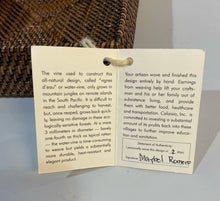 The vine used to construct this
all-natural design, called "vignes
d'eau" or water-vines, only grows in
mountain jungles on remote islands
in the South Pacific. It is difficult to
reach and challenging to harvest,
but, once reaped, grows back quick-
ly, leaving no damage in these eco-
logically-sensitive forests. At a mere
3 millimeters in diameter — barely
one-fourth as thick as typical rattan
— the water-vine is less convenient
to weave but yields a substantially
more durable, heat-resistant and
elegant product.
Your artisan wove and finished this
design entirely by hand. Earnings
from weaving help lift your crafts-
man and his or her family out of
substance living, and provide
them with better food, clothing,
housing, and healthcare. Calaisio, Inc. is
committed to a substantial
amount of its profits back into these
villages to further improve educa-
tion and sanitation.
Statement of Authenticity
Signature